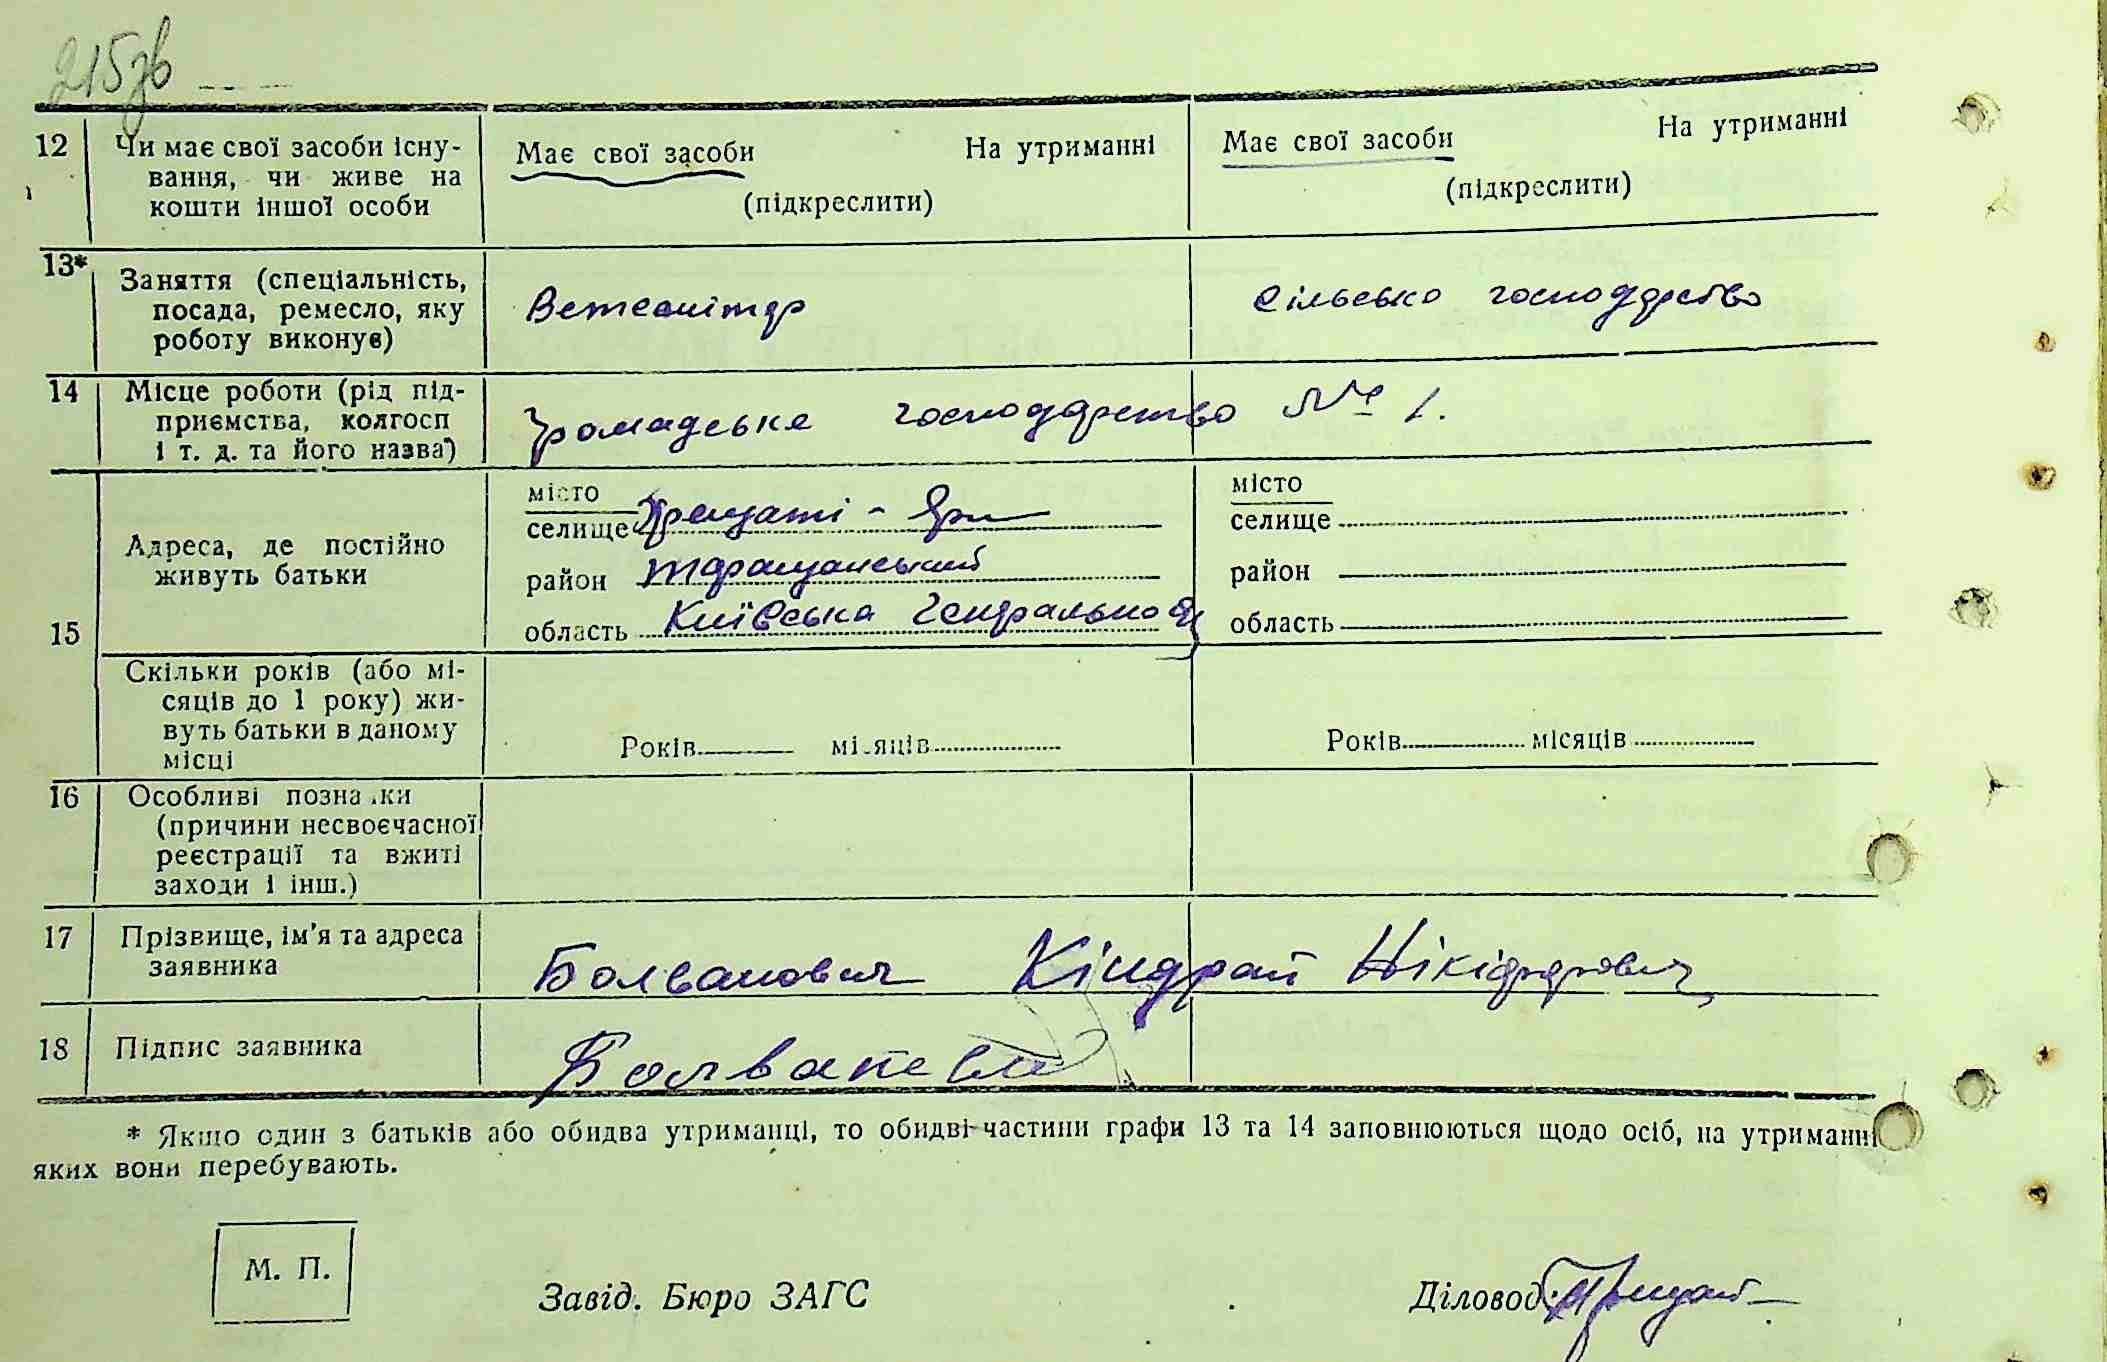 215зв
12 Чи має свої засоби існу-
вання, чи живе на
кошти іншої особи
Має свої засоби На утриманні
(підкреслити)
Має свої засоби На утриманні
(підкреслити)
13* Заняття (спеціальність,
посада, ремесло, яку
роботу виконує)
Ветсанітар
сільсько господарство
14 Місце роботи (рід під-
приємства, колгосп
і т. д. та його назва)
Громадське господарство № 1.
15 Адреса, де постійно
живуть батьки
місто
селище Хрещаті-Яри
район Таращанський
область Київська Генеральна
місто
селище
район
область
Скільки років (або мі-
сяців до 1 року) жи-
вуть батьки в даному
місці
Років місяців
Років місяців
16 Особливі познаки
(причини несвоєчасної
реєстрації та вжиті
заходи і інш.)
17 Прізвище, ім'я та адреса
заявника
Болванович Кіндрат Нікіфорович
18 Підпис заявника
* Якщо один з батьків або обидва утриманці, то обидві частини графи 13 та 14 заповнюються щодо осіб, на утриманні
яких вони перебувають.
М. П.
Завід. Бюро ЗАГС
Діловод: